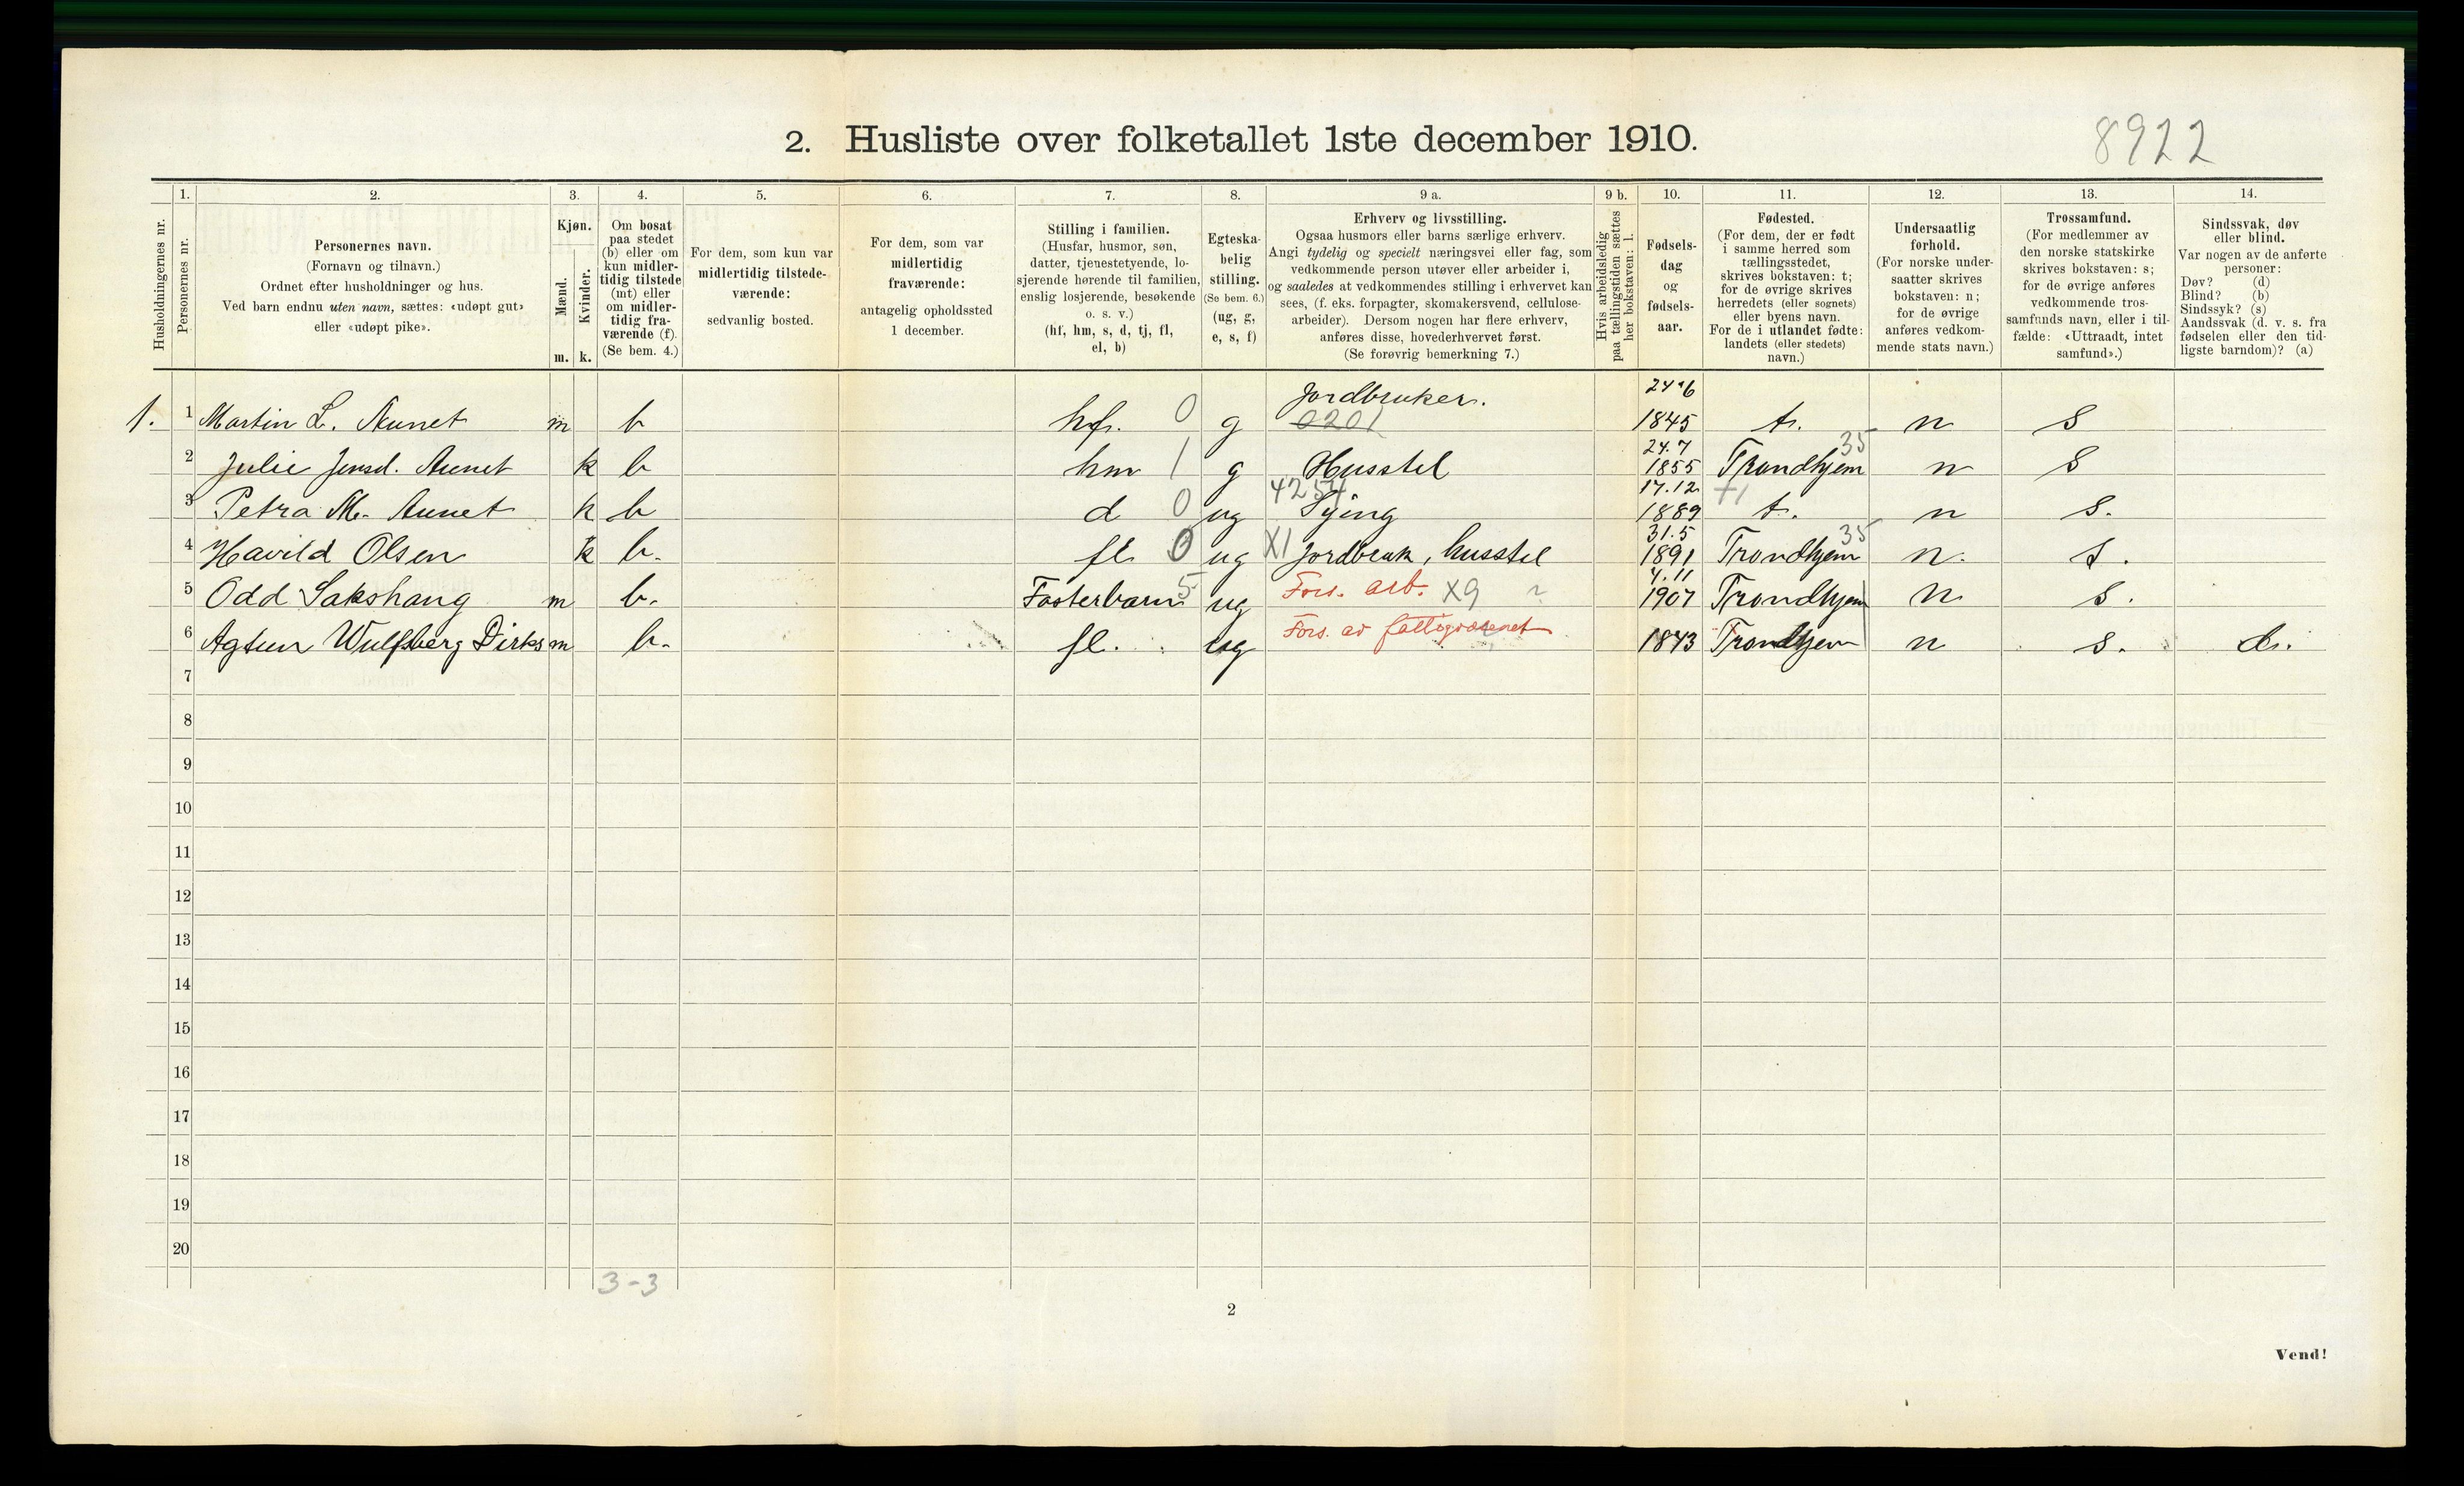 2. Husliste over folketallet 1ste december 1910.
8922
1. 2. 3. 4. 5. 6. 7. 8. 9 a. 9 b. 10. 11. 12. 13. 14.
Husholdningernes nr.
Personernes nr.
Personernes navn.
(Fornavn og tilnavn.)
Ordnet efter husholdninger og hus.
Ved barn endnu uten navn, sættes: «udøpt gut»
eller «udøpt pike».
Kjøn.
Mænd.
Kvinder.
m. k.
Om bosat
paa stedet
(b) eller om
kun midler-
tidig tilstede
(mt) eller
om midler-
tidig fra-
værende (f).
(Se bem. 4.)
For dem, som kun var
midlertidig tilstede-
værende:
sedvanlig bosted.
For dem, som var
midlertidig
fraværende:
antagelig opholdssted
1 december.
Stilling i familien.
(Husfar, husmor, søn,
datter, tjenestetyende, lo-
sjerende hørende til familien,
enslig losjerende, besøkende
o. s. v.)
(hf, hm, s, d, tj, fl,
el, b)
Egteska-
belig
stilling.
(Se bem. 6.)
(ug, g,
e, s, f)
Erhverv og livsstilling.
Ogsaa husmors eller barns særlige erhverv.
Angi tydelig og specielt næringsvei eller fag, som
vedkommende person utøver eller arbeider i,
og saaledes at vedkommendes stilling i erhvervet kan
sees, (f. eks. forpagter, skomakersvend, cellulose-
arbeider). Dersom nogen har flere erhverv,
anføres disse, hovederhvervet først.
(Se forøvrig bemerkning 7.)
Hvis arbeidsledig
paa tællingstiden sættes
her bokstaven: l.
Fødsels-
dag
og
fødsels-
aar.
Fødested.
(For dem, der er født
i samme herred som
tællingsstedet,
skrives bokstaven: t;
for de øvrige skrives
herredets (eller sognets)
eller byens navn.
For de i utlandet fødte:
landets (eller stedets)
navn.)
Undersaatlig
forhold.
(For norske under-
saatter skrives
bokstaven: n;
for de øvrige
anføres vedkom-
mende stats navn.)
Trossamfund.
(For medlemmer av
den norske statskirke
skrives bokstaven: s;
for de øvrige anføres
vedkommende tros-
samfunds navn, eller i til-
fælde: «Uttraadt, intet
samfund».)
Sindssvak, døv
eller blind.
Var nogen av de anførte
personer:
Døv? (d)
Blind? (b)
Sindssyk? (s)
Aandssvak (d. v. s. fra
fødselen eller den tid-
ligste barndom)? (a)
1. 1 Martin L. Aunet m b hf. 0 g Jordbruker. 0201 24.6 1845 t. n s
2 Julie Jensd. Aunet k b hm 1 g Husstel 24.7 1855 Trondhjem 35 n s
3 Petra M. Aunet k b d 0 ug 4254 Sying 17.12 1889 t. n s.
4 Havild Olsen k b. fl 0 ug X1 Jordbruk, husstel 31.5 1891 Trondhjem 35 n. s.
5 Odd Sakshaug m b. Fosterbarn 5 ug Fors. arb. X9 4.11 1907 Trondhjem n s.
6 Agtun Wulfsberg Dirks m b. fl. ug Fors. av fattigvæsenet 1843 Trondhjem n s.
7
8
9
10
11
12
13
14
15
16
17
18
19
20
3-3
2
Vend!